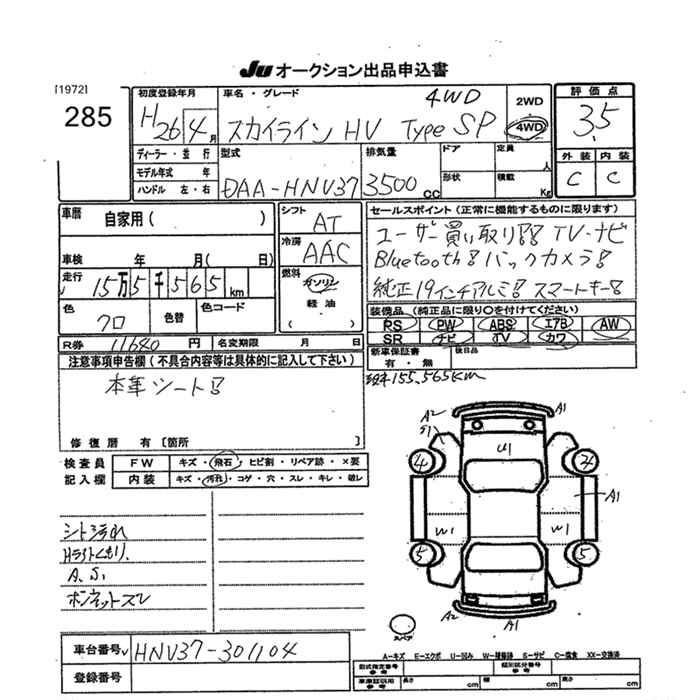 JU オークション出品申込書
[1972]
285
初度登録年月
H26年4月
車名・グレード
スカイライン HV Type SP 4WD
2WD
4WD
評価点
3.5
外装 内装
C C
ディーラー・並行
モデル年式 年
ハンドル 左・右
型式
DAA-HNV37
排気量
3500cc
ドア
形状
定員 人
積載 Kg
車歴 自家用( )
車検 年 月( 日)
走行
15万5千565km
色 クロ
色替
色コード
シフト
AT
冷房
AAC
燃料
ガソリン
軽油
( )
セールスポイント(正常に機能するものに限ります)
ユーザー買い取り!! TV・ナビ
Bluetooth! バックカメラ!
純正19インチアルミ! スマートキー!
装備品(純正品に限り○を付けてください)
PS PW ABS エアB AW
SR ナビ TV カワ
R券 11640円
名変期限 月 日
新車保証書
有・無
後日品
注意事項申告欄(不具合内容等は具体的に記入して下さい)
本革シート!
修復歴 有〔箇所 〕
155,565km
検査員
記入欄
FW キズ・飛石・ヒビ割・リペア跡・×要
内装 キズ・汚れ・コゲ・穴・スレ・キレ・破レ
シート汚れ
Hライトくもり、
A、S、
ボンネットズレ
A2 A1
S1
U1
4 4
A1
W1 W1
5 5
A2 A1
スペア
車台番号 HNV37-301104
登録番号
A-キズ E-エクボ U-凹み W-補修跡 S-サビ C-腐食 XX-交換済
型式指定番号
参考
類別区分番号
参考
車庫証明用
参考
長さ cm
幅 cm
高さ cm